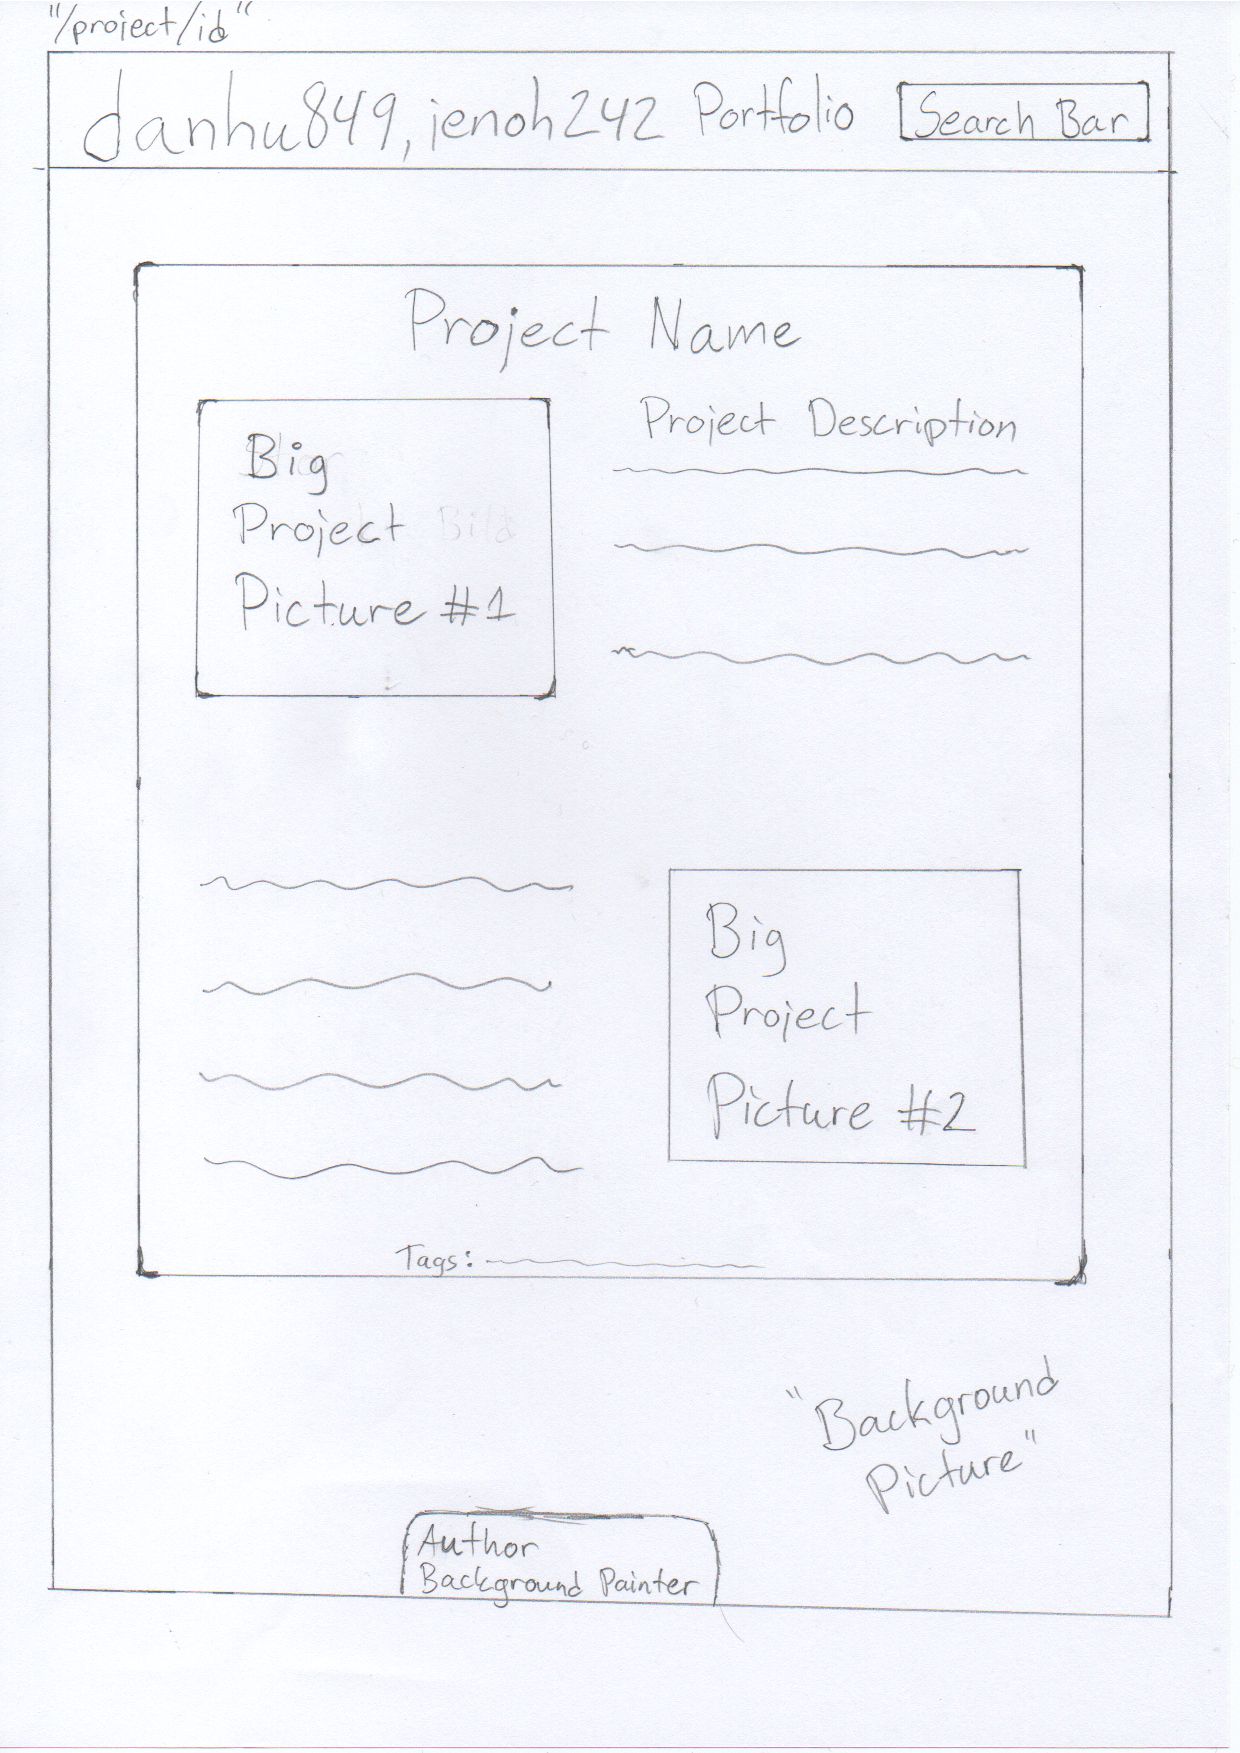 "/project/id"
danhu849, jenoh242 Portfolio Search Bar
Project Name
Project Description
Big
Project
Picture #1
Big
Project
Picture #2
Tags:
"Background
Picture"
Author
Background Painter